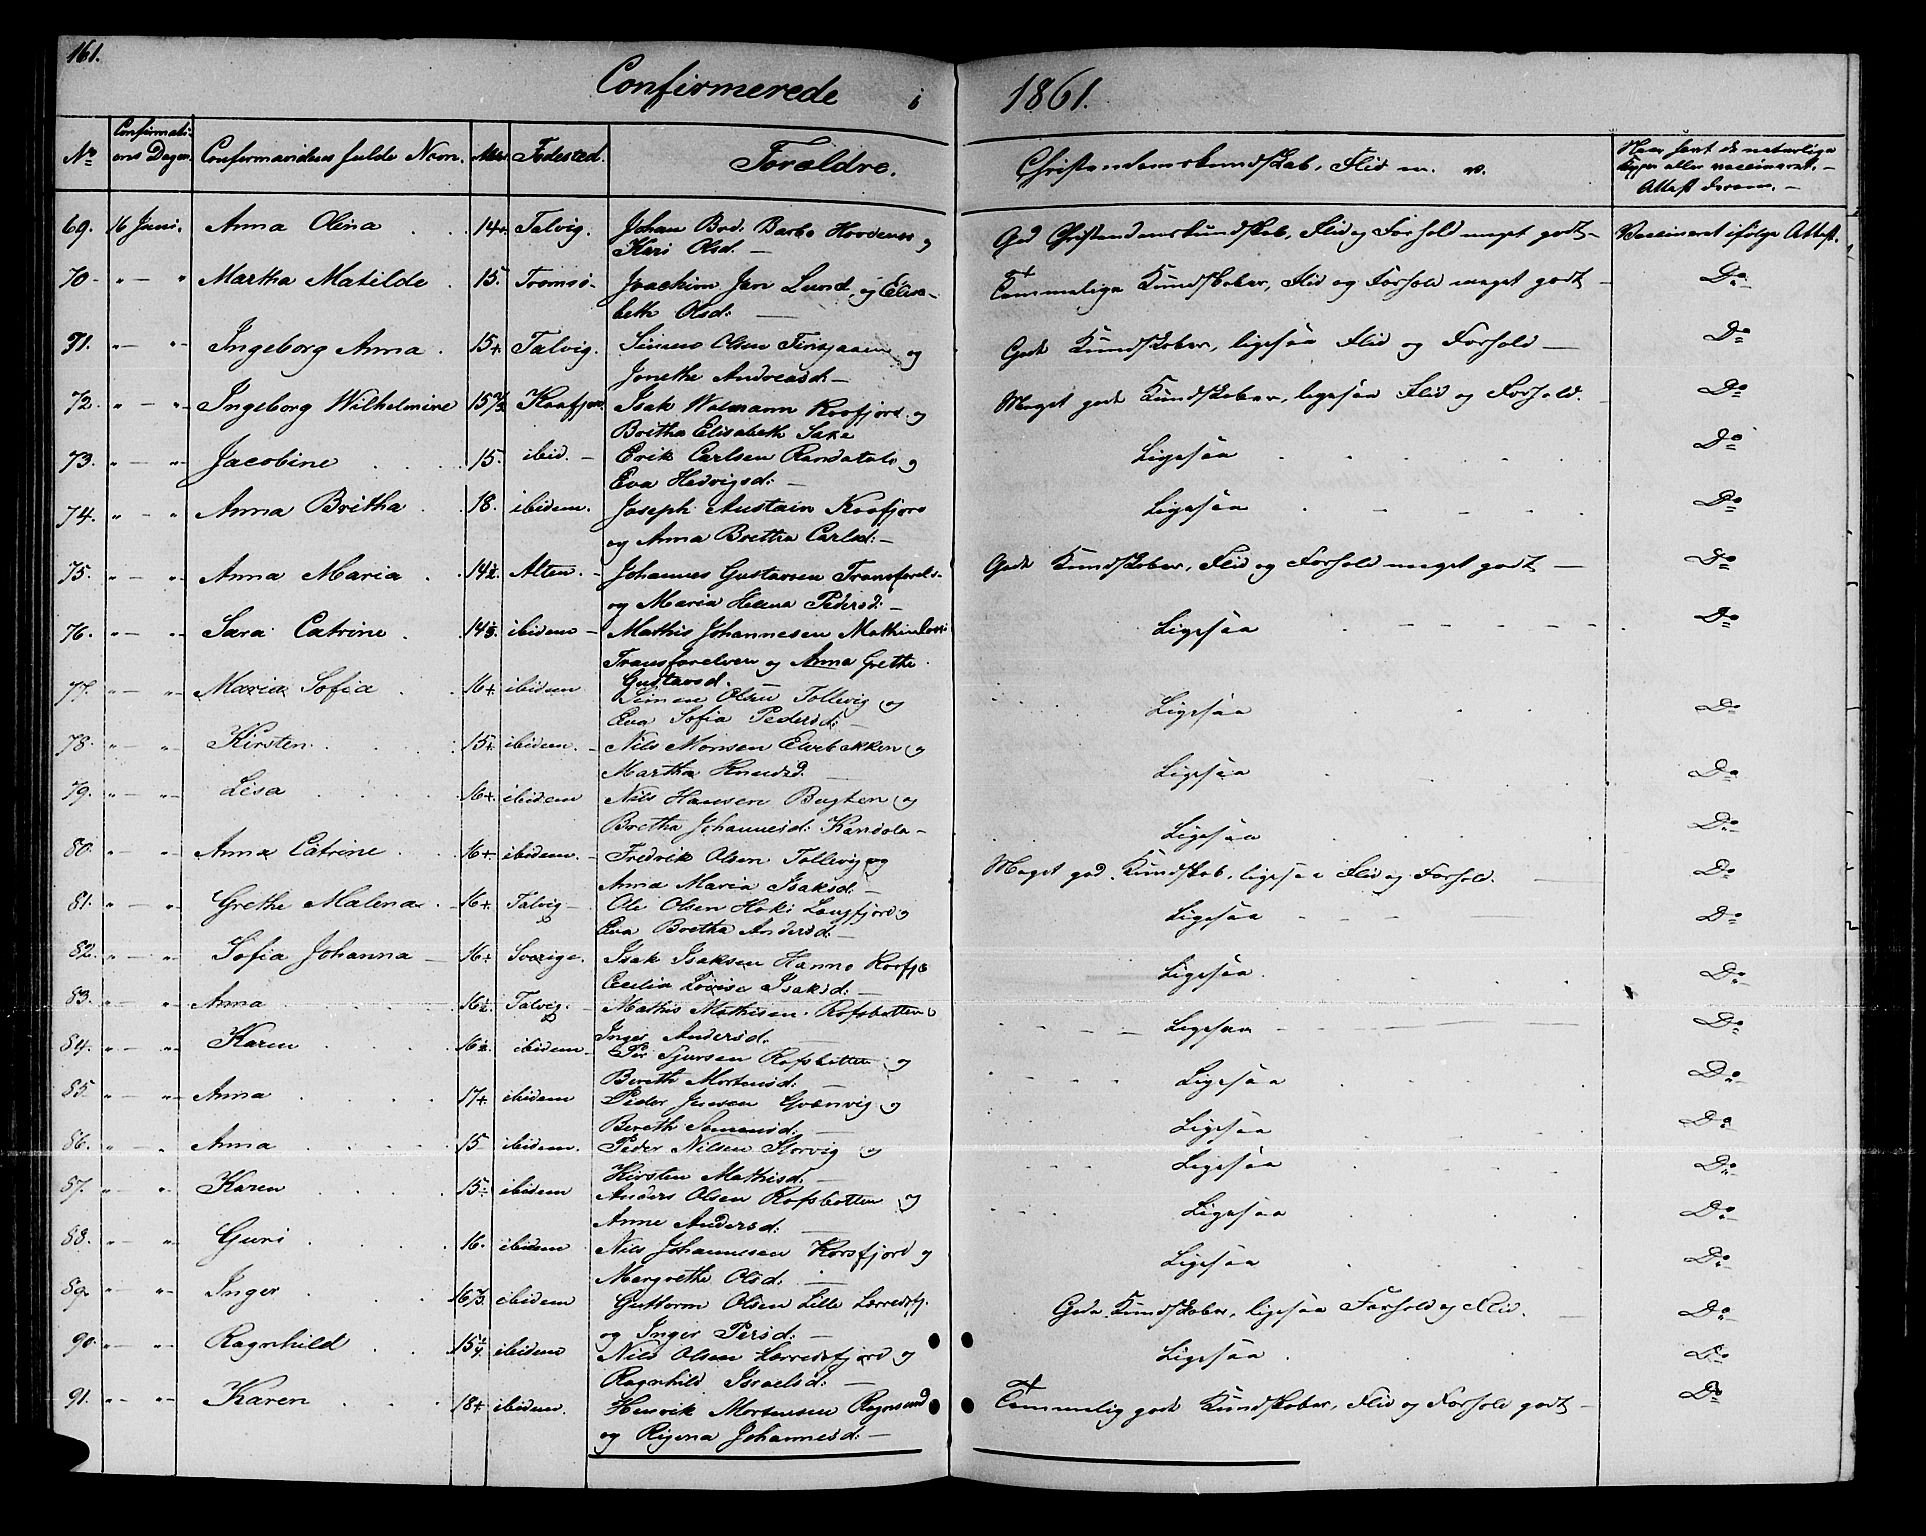 161.
Confirmerede i 1861.
No Confirmations Dagen. Confirmandens fulde Navn. Alder Fødested. Forældre. Christendomskundskab, Flid m. v. Have havt de naturlige Kopper eller vaccineret. Attest derom.
69. 16 Juni. Anna Olina 14+ Talvig. Johan Brod. Barbo og God Christendomskundskab, Flid og Forhold meget godt Vaccineret ifølge Attest.
Kari Olsd.
70. " " Martha Matilde 15. Tromsø. Joachim Jen Lund og Elisa- Temmelige Kundskaber, Flid og Forhold meget godt Do
beth Olsd:
71. " " Ingeborg Anna 15+ Talvig. Simen Olsen og Gode Kundskaber, ligesaa Flid og Forhold Do
Jonethe Andreasd:
72. " " Ingeborg Wilhelmine 15 Kaafjord Isak Wolmann Kaafjord og Meget gode Kundskaber, ligesaa Flid og Forhold. Do
Britha Elisabeth
73. " " Jacobine 15. ibid. Erik Carlsen Randatalo og Ligesaa Do
Eva Hedvigsd:
74. " " Anna Britha 18. ibidem. Joseph Austain Kaafjord Ligesaa Do
og Anna Bretha Carlsd:
75. " " Anna Maria 14½ Alten. Johannes Gustavsen Transfarelv. Gode Kundskaber, Flid og Forhold meget godt Do
og Maria Helena Pedersd:
76. " " Sara Catrine 14½ ibidem Mathis Johannesen Ligesaa Do
Transfarelven og Anna Grethe
Gustavsd.
77. " " Maria Sofia 16+ ibidem Simen Olsen Tollevig og Ligesaa Do
Eva Sofia Pedersd:
78. " " Kirsten 15+ ibidem. Nils Monsen Elvebakken og Ligesaa Do
Martha Knudsd.
79. " " Lisa 16+ ibidem Nils Hansen Bugten og Ligesaa Do
Bretha Johannesd: Kandola
80. " " Anna Catrine 16+ ibidem. Fredrik Olsen Tollevig og Meget god Kundskab, ligesaa Flid og Forhold. Do
Anna Maria Isaksd:
81. " " Grethe Malena 16+ Talvig Ole Olsen Langfjord og Ligesaa Do
Eva Bretha Andersd:
82. " " Sofia Johanna 16+ Sverige. Isak Isaksen Hanno Kaafj. Ligesaa. Do
Cecilia Lovisa Isaksd:
83. " " Anna 16½ Talvig. Mathis Mathisen Rafsbotten Ligesaa Do
Inger Andersd.
84. " " Karen 16½ ibidem Per Sjursen Rafsbotten og Ligesaa Do
Bereth Mortensd:
85. " " Anna 17+ ibidem Peder Jensen Qvænvig og Ligesaa Do
Bereth Simensd:
86. " " Anna 15 ibidem. Peder Nilsen Storvig og Ligesaa Do
Kirsten Mathisd.
87. " " Karen 15 ibidem Anders Olsen Rafsbotten og Ligesaa Do
Anne Andersd:
88. " " Guri 16. ibidem Nils Johannesen Korsfjord og Ligesaa Do
Margrethe Olsd:
89. " " Inger 16⅔ ibidem Guttorm Olsen Lille Lerredsfj. Gode Kundskaber, ligesaa Forhold og Flid. Do
og Inger Persd:
90. " " Ragnhild 15¼ ibidem Nils Olsen Lerredsfjord og Ligesaa Do
Ragnhild Israelsd:
91. " " Karen 18+ ibidem. Henrik Mortensen Rognsund Temmelig gode Kundskaber, Flid og Forhold godt Do
og Rigena Johannesd: